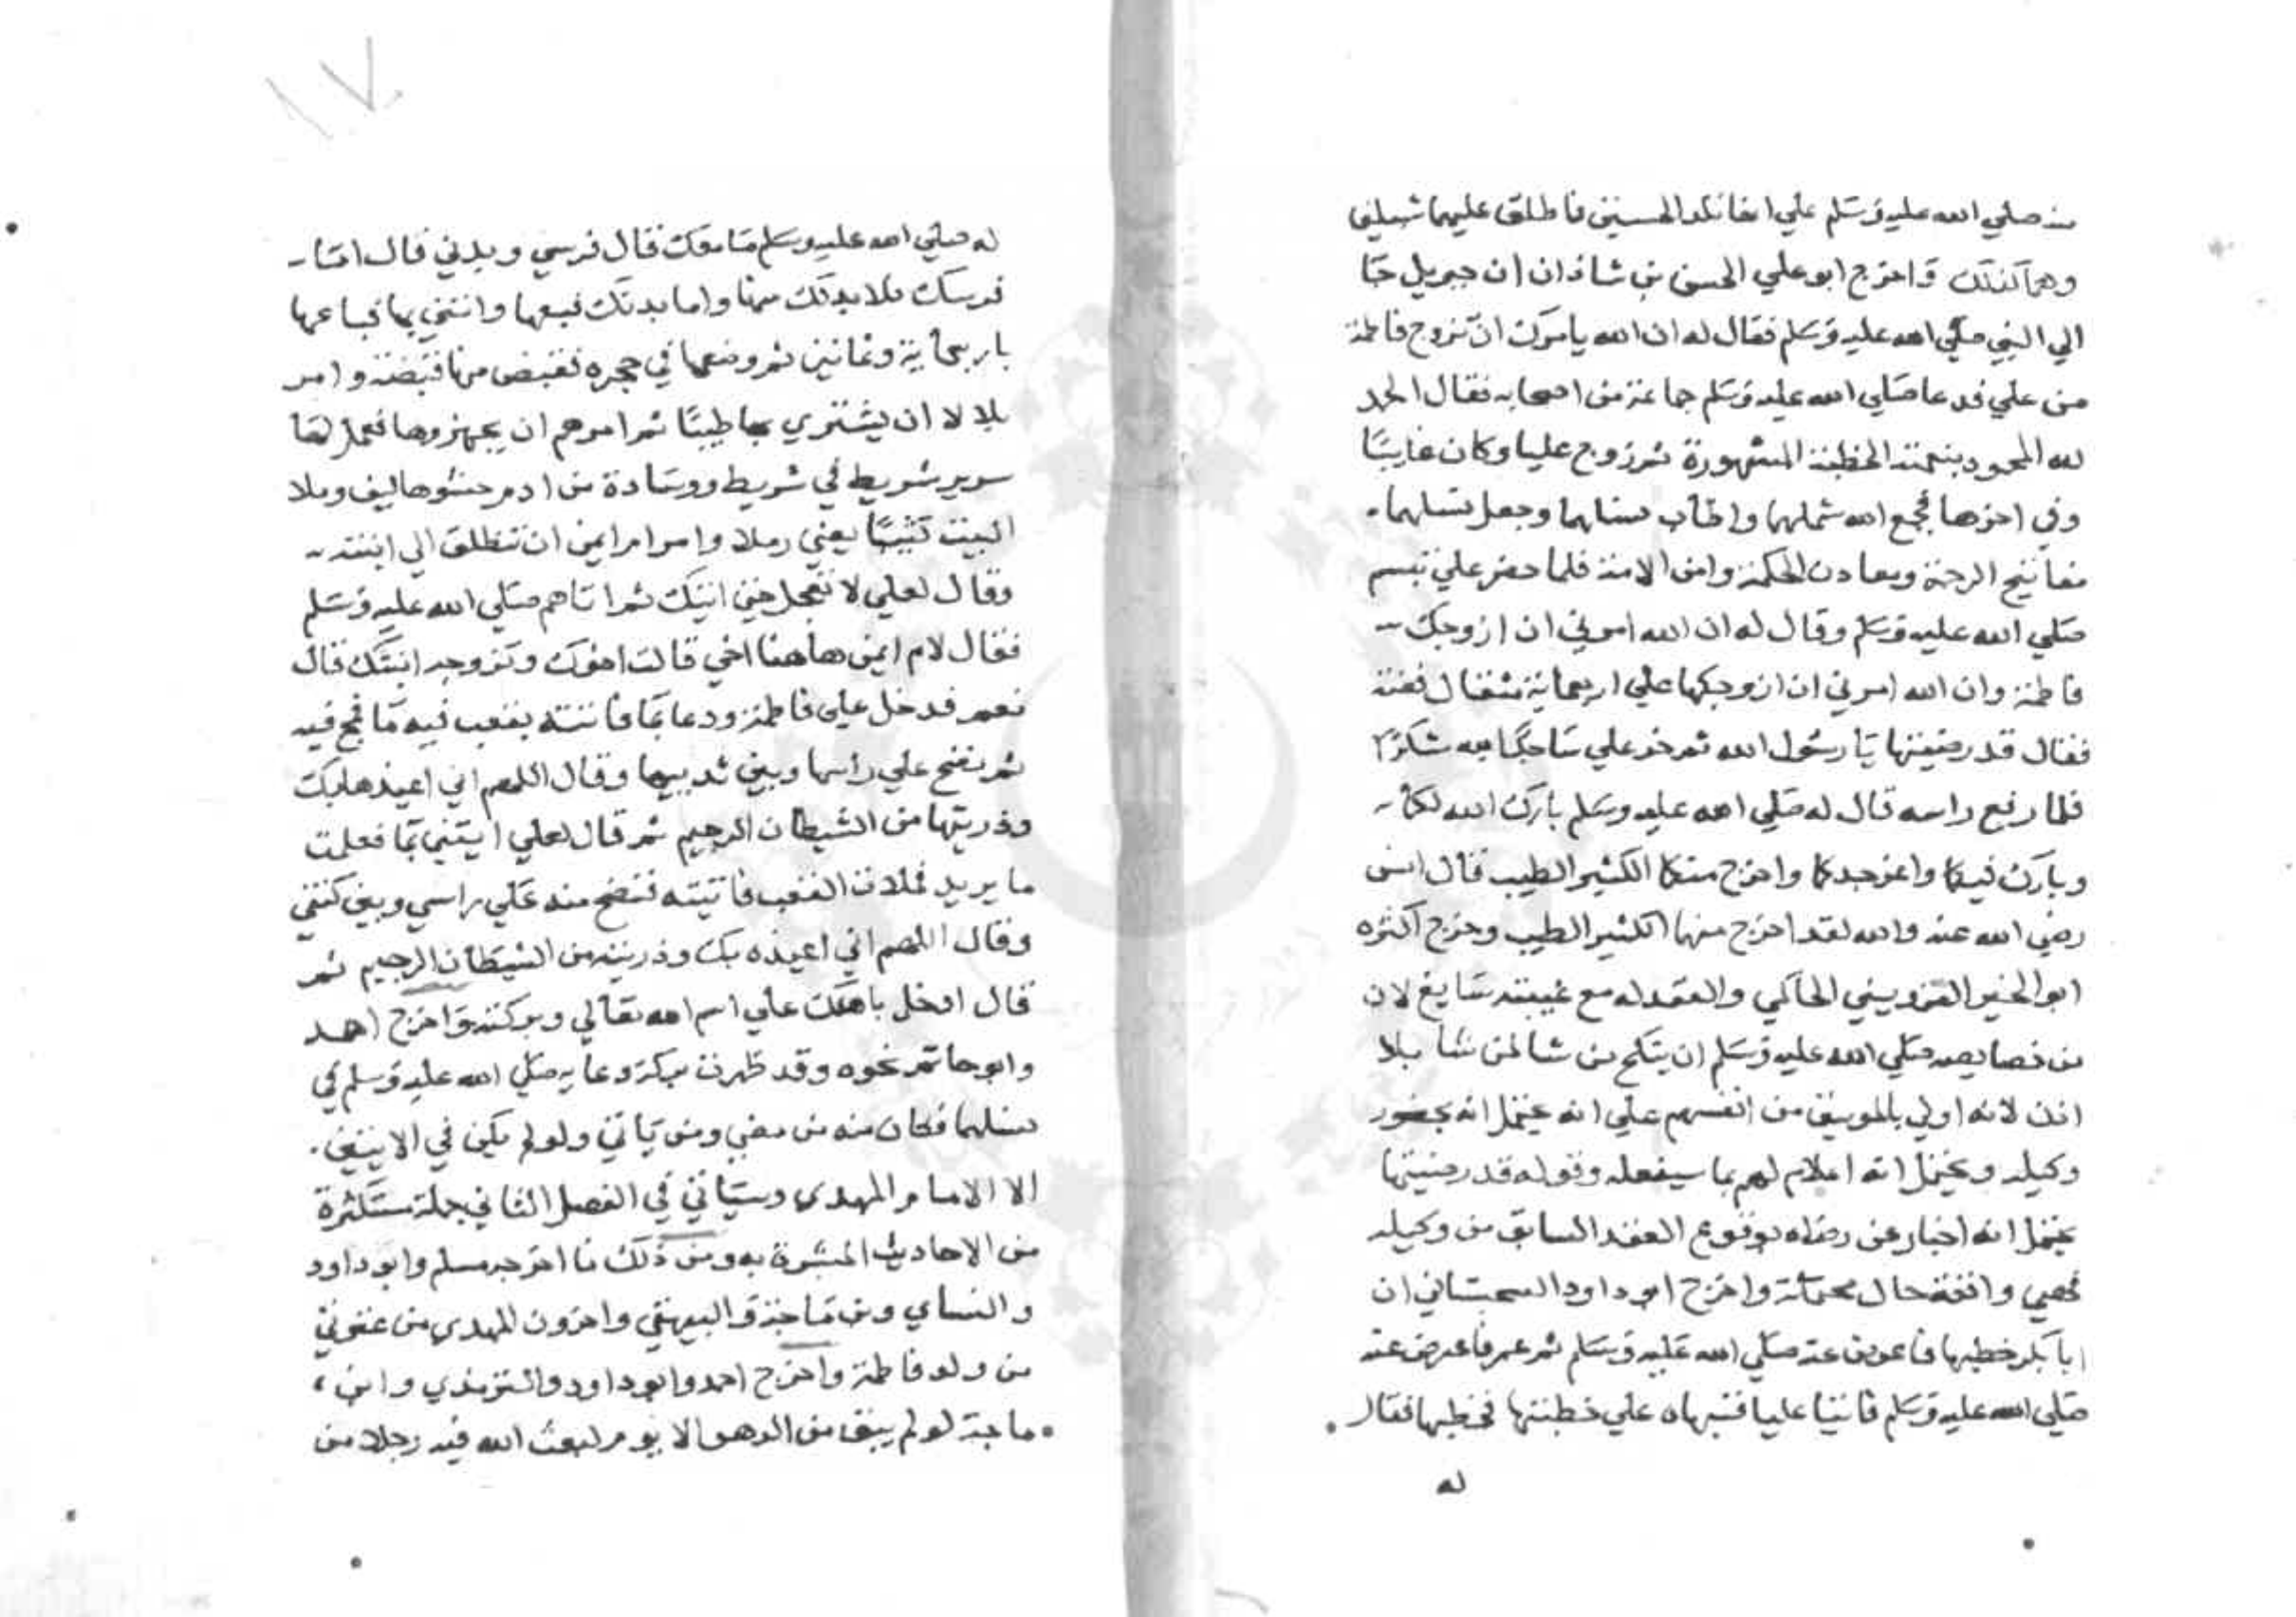 منه صلي الله عليه وسلم علي انهما نسل الحسنين فاطلق عليهما شبلين
وهما كذلك واخرج ابو علي الحسن بن شاذان ان جبريل جا
الي النبي صلي الله عليه وسلم فقال له ان الله يامرك ان تزوج فاطمة
من علي فدعا صلي الله عليه وسلم جماعة من اصحابه فقال الحمد
لله المحمود بنعمته الخطبة المشهورة ثم زوج عليا وكان غايبًا
وفي اخرها فجمع الله شملهما واطاب نسلهما وجعل نسلهما
مفاتيح الرحمة ومعادن الحكمة وامن الامة فلما حضر علي تبسم
صلي الله عليه وسلم وقال له ان الله امرني ان ازوجك
فاطمة وان الله امرني ان ازوجكها علي اربعماية مثقال فضة
فقال قد رضيتها يا رسول الله ثم خر علي ساجدًا لله شكرًا
فلما رفع راسه قال له صلي الله عليه وسلم بارك الله لكما
وبارك فيكما واعز جدكما واخرج منكما الكثير الطيب قال انس
رضي الله عنه والله لقد اخرج منهما الكثير الطيب وخرج اكثره
ابو الخير القزويني الحاكمي والعقد له مع غيبته سايغ لان
من خصايصه صلي الله عليه وسلم ان ينكح من شا لمن شا بلا
اذن لانه اولي بالمومنين من انفسهم علي انه يحتمل انه بحضور
وكيله ويحتمل انه اعلام لهم بما سيفعله وقوله قد رضيتها
يحتمل انه اخبار عن رضاه بوقوع العقد السابق من وكيله
فهي واقعة حال محتملة واخرج ابو داود السجستاني ان
ابا بكر خطبها فاعرض عنه صلي الله عليه وسلم ثم عمر فاعرض عنه
صلي الله عليه وسلم فاتيا عليا فنبهاه علي خطبتها فخطبها فقال
له
١٧
له صلي الله عليه وسلم ما معك فقال فرسي وبدني قال اما
فرسك فلا بد لك منها واما بدنك فبعها وائتني بها فباعها
باربعماية وثمانين ثم وضعها في حجره فقبض منها قبضة وامر
بلالا ان يشتري بها طيبًا ثم امرهم ان يجهزوها فعمل لها
سرير شريط في شريط ووسادة من ادم حشوها ليف وملا
البيت كثيبًا يعني رملا وامر ام ايمن ان تنطلق الي ابنته
وقال لعلي لا تعجل حتي اتيك ثم اتاهم صلي الله عليه وسلم
فقال لام ايمن هاهنا اخي قالت اخوك وتزوجه ابنتك قال
نعم فدخل علي فاطمة ودعا بما فاتته بقعب فيه ما فمج فيه
ثم نضح علي راسها وبين ثدييها وقال اللهم اني اعيذها بك
وذريتها من الشيطان الرجيم ثم قال لعلي ايتني بما فعلمت
ما يريد فملات القعب فاتيته فنضح منه علي راسي وبين كتفي
وقال اللهم اني اعيذه بك وذريته من الشيطان الرجيم ثم
قال ادخل باهلك علي اسم الله تعالي وبركته واخرج احمد
وابو حاتم نحوه وقد ظهرت بركة دعايه صلي الله عليه وسلم في
نسلهما فكان منه من مضي ومن ياتي ولو لم يكن في الاتيين
الا الامام المهدي وسياتي في الفصل الثاني جملة مستكثرة
من الاحاديث المبشرة به ومن ذلك ما اخرجه مسلم وابو داود
والنساي وبن ماجة والبيهقي واخرون المهدي من عترتي
من ولد فاطمة واخرج احمد وابو داود والترمذي وابن
ماجة لو لم يبق من الدهر الا يوم لبعث الله فيه رجلا من